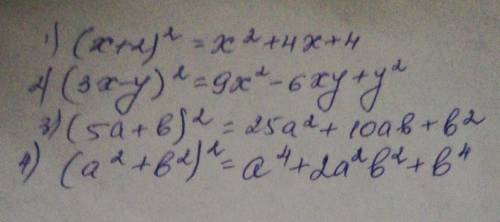 1) (x+2)² = x²+4x+4
2) (3x-y)² = 9x²-6xy+y²
3) (5a+b)² = 25a²+10ab+b²
4) (a²+b²)² = a⁴+2a²b²+b⁴